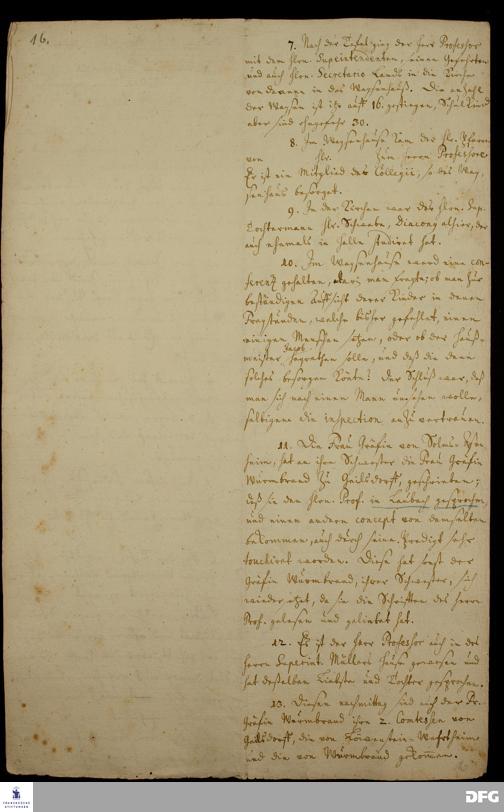 16.
7. Nach der Tafel ging der Herr Professor
mit dem Hrn. Superintendenten, seinen Gefehrten
und auch Hrn. Secretario Lands in die Kirche
von dannen in das Waysenhauß. Die anzahl
der Waysen ist itzo auff 16. gestiegen, Schul Kinder
aber sind ohngefehr 30.
8. Im Waysenhause kam der Hr. Pfarrer
von Hr. zum Herrn Professore.
Er ist ein Mitglied des Collegii, so das Way-
senhaus besorget.
9. In der Kirchen war des Hrn. Sup.
Tochtermann Hr. Schwabe, Diaconus alhier, der
auch ehemals in Halle studiret hat.
10. Im Waysenhause ward eine con-
ferenz gehalten, darin man fragte: ob man zur
beständigen Aufsicht derer Kinder in denen
Freystunden, welche bisher gefehlet, einen
einigen Menschen setzen, oder ob der Hauß-
meister heyrathen solle, und daß die denn
solches besorgen könte? Der Schluß war, daß
man sich nach einem Mann umsehen wolle,
selbigem die inspection anzuvertrauen.
11. Die Frau Gräfin von Solms-
heim, hat an ihre Schwester die Frau Gräfin
Wurmbrand zu Gailsdorff, geschrieben;
daß sie den Hrn. Prof. in Laubach gesprochen,
und einen andern concept von demselben
bekommen, auch durch seine Predigt sehr
touchiret worden. Diese hat sonst der
Gräfin Wurmbrand, ihrer Schwester, sich
wiedersetzet, da sie die Schrifften des Herrn
Prof. gelesen und geliebet hat.
12. Es ist der Herr Professor auch in des
Herrn Superint. Müllers Hause gewesen und
hat deßelben Liebste und Tochter gesprochen.
13. Diesen nachmittag sind auch der Fr.
Gräfin Wurmbrand ihre 2. Comtessen von
Gailsdorff, die von Löwenstein-Wertheim
und die von Wurmbrand gekommen.
FRANCKESCHE
STIFTUNGEN
DFG